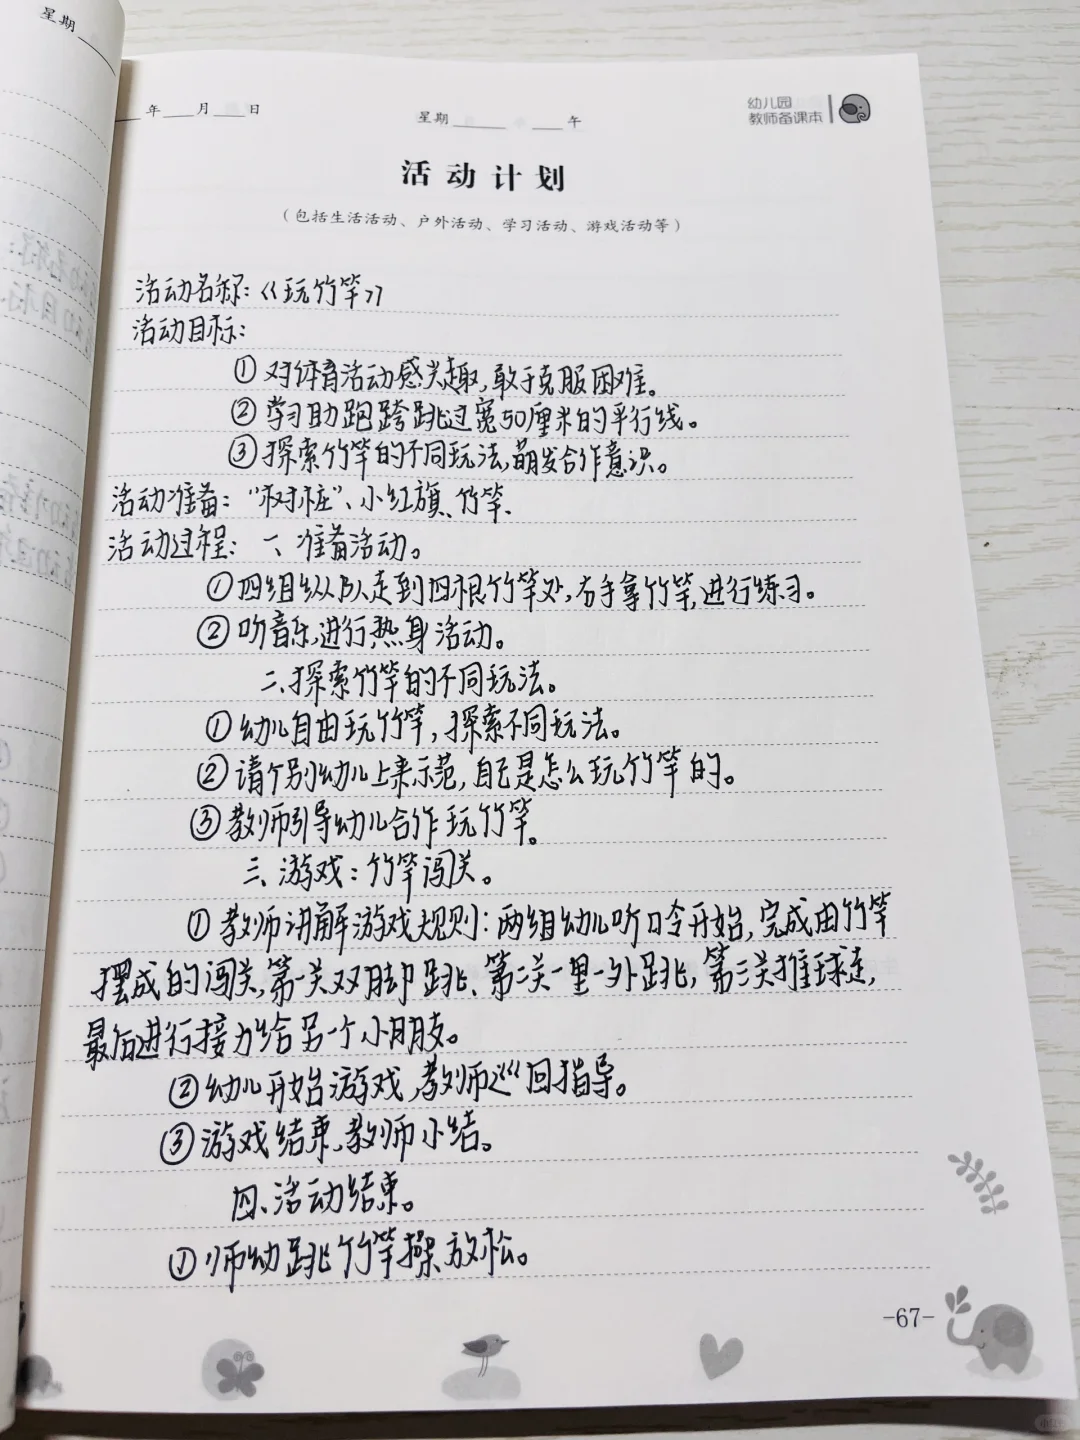 星期
年 月 日
星期 午
幼儿园
教师备课本
活动计划
（包括生活活动、户外活动、学习活动、游戏活动等）
活动名称：《玩竹竿》
活动目标：
①对体育活动感兴趣，敢于克服困难。
②学习助跑跨跳过宽50厘米的平行线。
③探索竹竿的不同玩法，萌发合作意识。
活动准备：“树桩”、小红旗、竹竿、
活动过程：一、准备活动。
①四组纵队走到四根竹竿处，右手拿竹竿，进行练习。
②听音乐，进行热身活动。
二、探索竹竿的不同玩法。
①幼儿自由玩竹竿，探索不同玩法。
②请个别幼儿上来示范，自己是怎么玩竹竿的。
③教师引导幼儿合作玩竹竿。
三、游戏：竹竿闯关。
①教师讲解游戏规则：两组幼儿听口令开始，完成由竹竿
摆成的闯关，第一关双脚跳、第二关一里一外跳，第三关推球走，
最后进行接力给另一个小朋友。
②幼儿开始游戏，教师巡回指导。
③游戏结束，教师小结。
四、活动结束。
①师幼跳竹竿操放松。
-67-